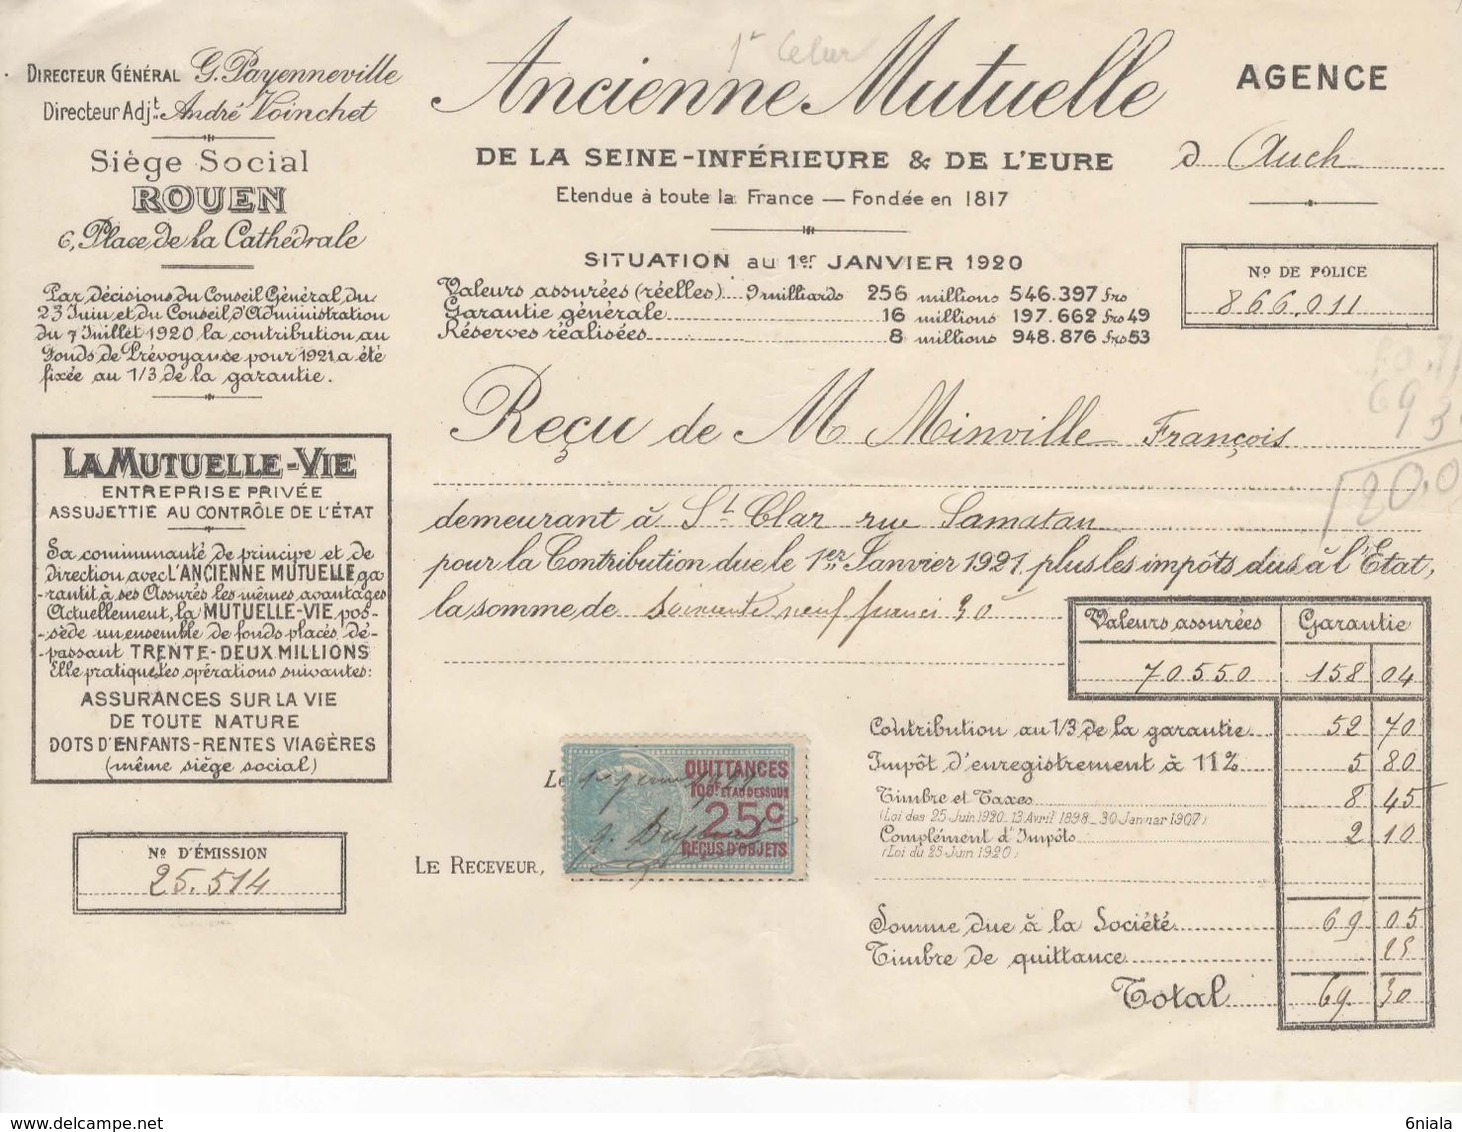 DIRECTEUR GÉNÉRAL G. Payenneville
Directeur Adjt. André Voinchet
Siège Social
ROUEN
6, Place de la Cathédrale
Par décisions du Conseil Général du
23 Juin et du Conseil d'Administration
du 7 Juillet 1920 la contribution au
Fonds de Prévoyance pour 1921 a été
fixée au 1/3 de la garantie.
LA MUTUELLE-VIE
ENTREPRISE PRIVÉE
ASSUJETTIE AU CONTRÔLE DE L'ÉTAT
Sa communauté de principe et de
direction avec L'ANCIENNE MUTUELLE ga
-rantit à ses Assurés les mêmes avantages
Actuellement, la MUTUELLE-VIE pos-
-sède un ensemble de fonds placés, dé-
-passant TRENTE-DEUX MILLIONS
Elle pratique les opérations suivantes:
ASSURANCES SUR LA VIE
DE TOUTE NATURE
DOTS D'ENFANTS-RENTES VIAGÈRES
(même siège social)
No D'ÉMISSION
25.514
Ancienne Mutuelle
DE LA SEINE-INFÉRIEURE & DE L'EURE
Etendue à toute la France — Fondée en 1817
SITUATION au 1er JANVIER 1920
Valeurs assurées (réelles)... 9 milliards 256 millions 546.397 frs
Garantie générale 16 millions 197.662 frs 49
Réserves réalisées 8 millions 948.876 frs 53
AGENCE
d Auch
No DE POLICE
866.011
69 3
Reçu de M Minville François
demeurant à St Clar rue Samatan
pour la Contribution due le 1er Janvier 1921, plus les impôts dus à l'Etat,
la somme de soixante neuf francs 30
Valeurs assurées Garantie
70550 158 04
Contribution au 1/3 de la garantie 52 70
Impôt d'enregistrement à 11% 5 80
Timbre et Taxes 8 45
(Loi des 25 Juin 1920_13 Avril 1898_30 Janvier 1907)
Complément d'Impôts 2 10
(Loi du 25 Juin 1920)
Somme due à la Société 69 05
Timbre de quittance 25
Total 69 30
Le 1er
QUITTANCES
100F ET AU DESSOUS
25c
REÇUS D'OBJETS
LE RECEVEUR,
www.delcampe.net
6niala